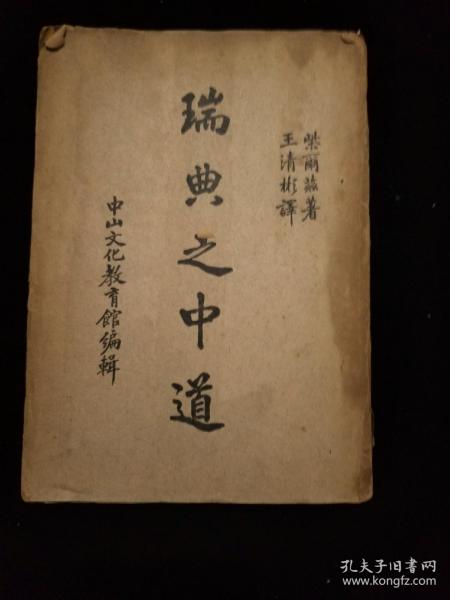 柴爾茲著
王清彬譯
瑞典之中道
中山文化教育館編輯
孔夫子旧书网
www.kongfz.com